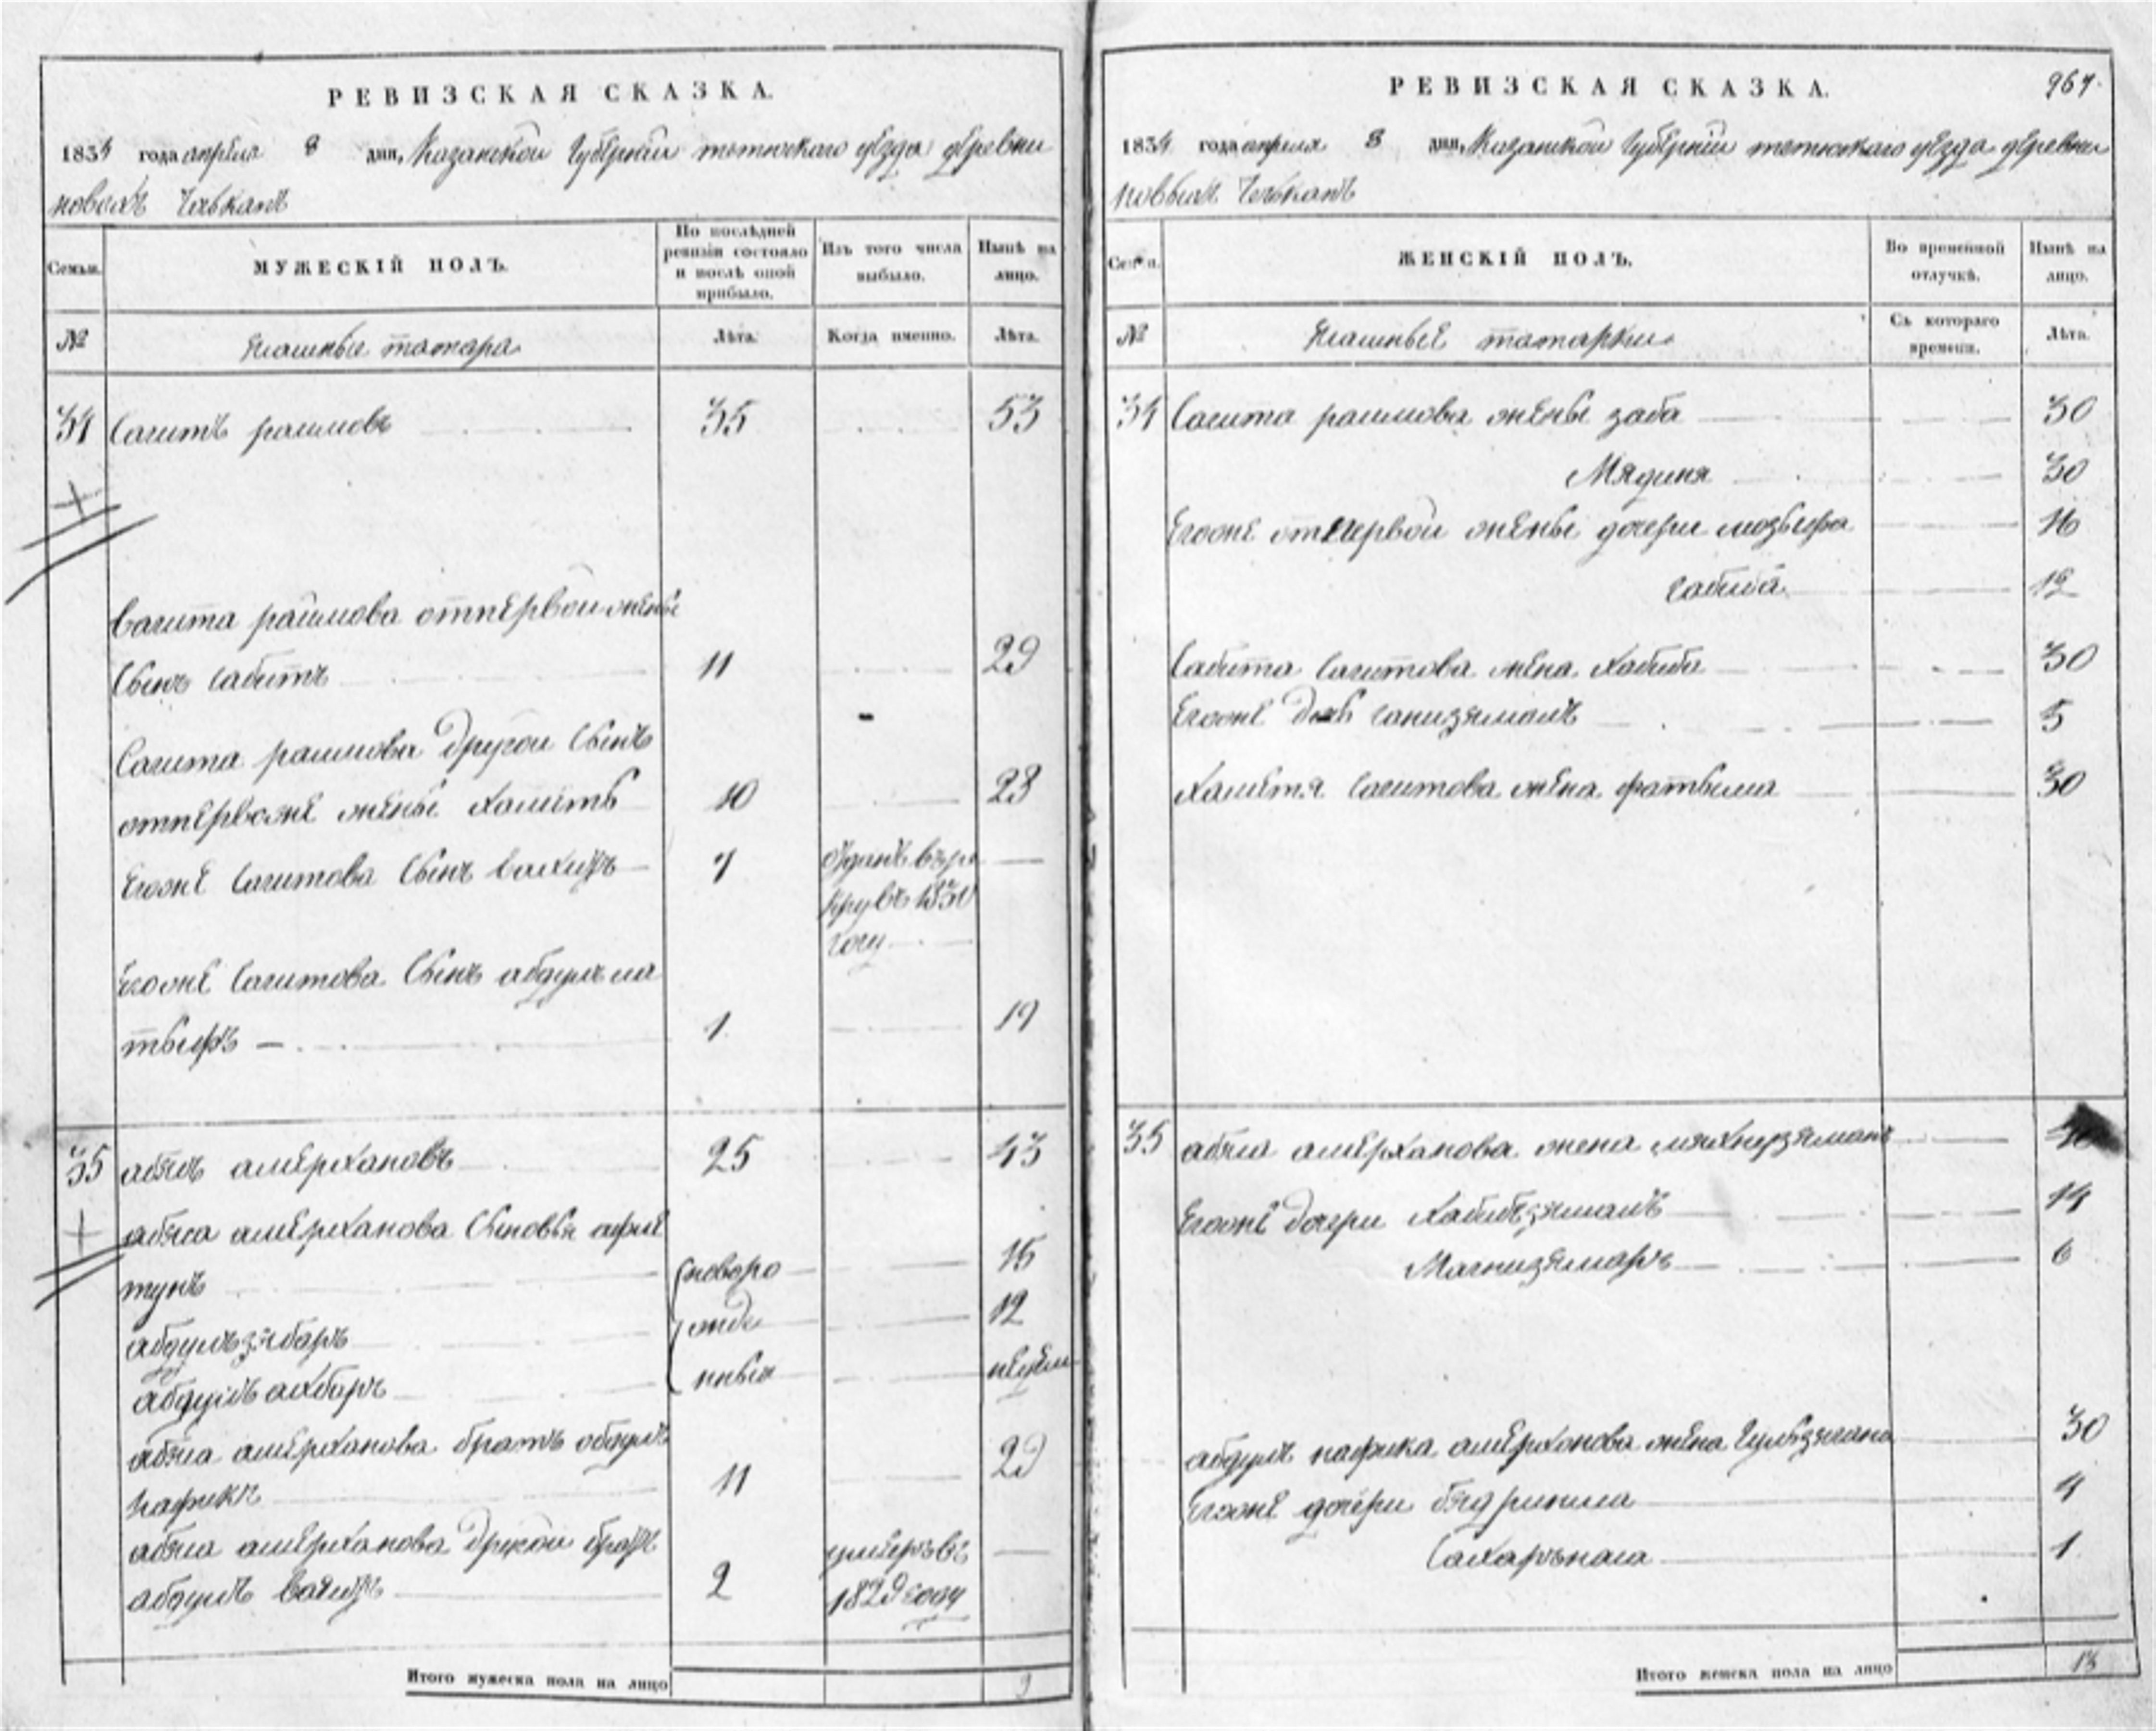 РЕВИЗСКАЯ СКАЗКА.
1834 года апреля 8 дня, Казанской Губернии тетюшскаго уезда деревни
новыхъ
Семьи.
МУЖЕСКІЙ ПОЛЪ.
По послѣдней ревизіи состояло и послѣ оной прибыло.
Изъ того числа выбыло.
Нынѣ на лицо.
№
татара
Лѣта.
Когда именно.
Лѣта.
34 Сагитъ раимовъ 35 53
Сагита раимова отпервой жены
Сынъ сабитъ 11 29
Сагита раимова другой Сынъ
отпервояже жены Хамитъ 10 28
Егоже Сагитова Сынъ вахитъ 7
1830
году
Егоже Сагитова Сынъ абдулъ ла
тыфъ 1 19
35 абялъ амерхановъ 25 43
абяла амерханова Сыновья
туnъ новоро 15
абдулъзябаръ жде 12
абдулъ ахбаръ нныя недели
абяла амерханова братъ абдулъ
нафикъ 11 29
абяла амерханова другой братъ умеръ въ
абдулъ вагитъ 2 1829 году
Итого мужеска пола на лицо 9
РЕВИЗСКАЯ СКАЗКА.
964
1834 года апреля 8 дня, Казанской Губернии тетюшскаго уезда деревни
новыхъ
Семьи.
ЖЕНСКІЙ ПОЛЪ.
Во временной отлучкѣ.
Нынѣ на лицо.
№
татарки
Съ котораго времени.
Лѣта.
34 Сагита раимова жены заба 30
Мядиня 30
Егоже отпервой жены дочери 16
сабиба 12
Сабита Сагитова жена Хабиба 30
Егоже дочь 5
Хамитя Сагитова жена фатыма 30
35 абяла амерханова жена
Егоже дочери Хабибъзямалъ 14
Магнизямаръ 6
абдулъ нафика амерханова жена 30
Егоже дочери 4
1
Итого женска пола на лицо 13